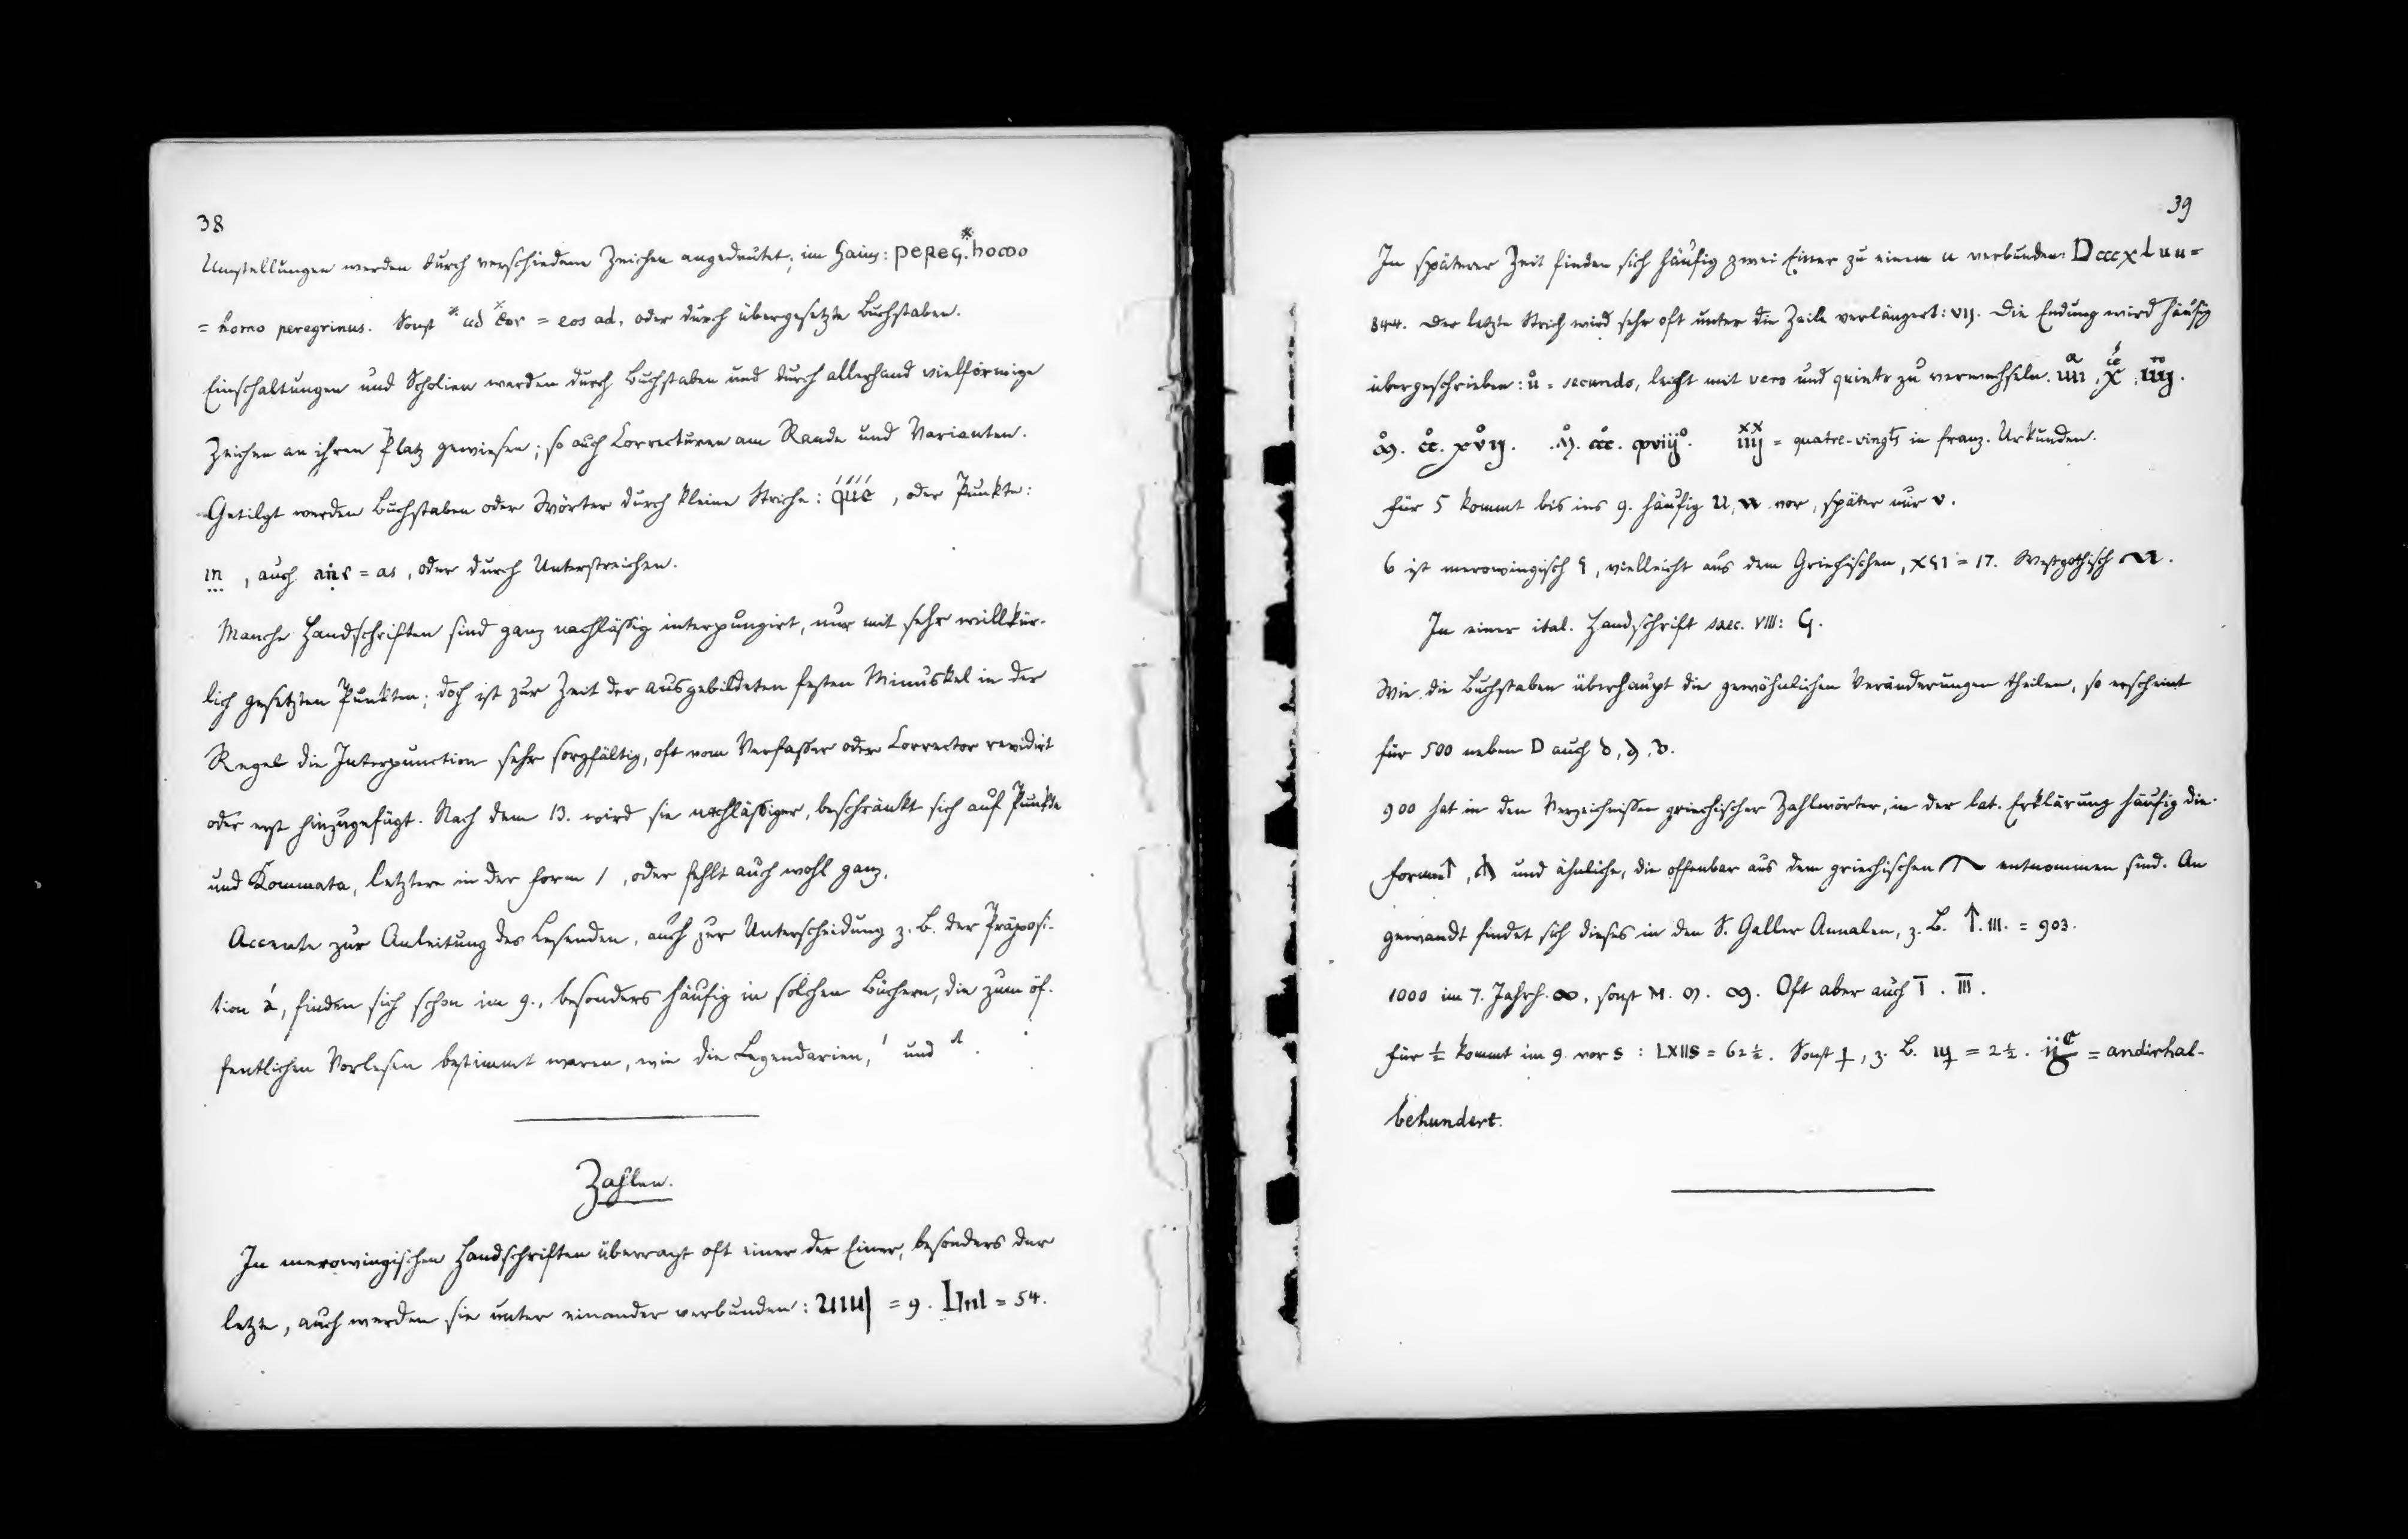 38
Umstellungen werden durch verschiedene Zeichen angedeutet, im Gaius: pereg. homo
= homo peregrinus. Sonst ad eos = eos ad, oder durch übergesetzte Buchstaben.
Einschaltungen und Scholien werden durch Buchstaben und durch allerhand vielförmige
Zeichen an ihren Platz gewiesen; so auch Correcturen am Rande und Varianten.
Getilgt werden Buchstaben oder Wörter durch kleine Striche: que, oder Punkte:
in, auch ans = as, oder durch Unterstreichen.
Manche Handschriften sind ganz nachläßig interpungirt, nur mit sehr willkür-
lich gesetzten Punkten; doch ist zur Zeit der ausgebildeten festen Minuskel in der
Regel die Interpunction sehr sorgfältig, oft vom Verfaßer oder Corrector revidirt
oder erst hinzugefügt. Nach dem 13. wird sie nachläßiger, beschränkt sich auf Punkte
und Kommata, letztere in der Form /, oder fehlt auch wohl ganz.
Accente zur Anleitung des Lesenden, auch zur Unterscheidung z. B. der Präposi-
tion á, finden sich schon im 9., besonders häufig in solchen Büchern, die zum öf-
fentlichen Vorlesen bestimmt waren, wie die Legendarien, ´ und
Zahlen.
In merowingischen Handschriften überragt oft einer der Einer, besonders der
letzte, auch werden sie unter einander verbunden: uıııı = 9. Lıııı = 54.
39
In späterer Zeit finden sich häufig zwei Einer zu einem u verbunden: DcccxLuu =
844. Der letzte Strich wird sehr oft unter die Zeile verlängert: vıj. Die Endung wird häufig
übergeschrieben: ů = secundo, leicht mit vero und quinto zu verwechseln.
= quatre-vingts in franz. Urkunden.
Für 5 kommt bis ins 9. häufig U, u vor, später nur v.
6 ist merowingisch ϛ, vielleicht aus dem Griechischen, xϛı = 17. Westgothisch
In einer ital. Handschrift saec. VIII: G.
Wie die Buchstaben überhaupt die gewöhnlichen Veränderungen theilen, so erscheint
für 500 neben D auch
900 hat in den Verzeichnißen griechischer Zahlwörter, in der lat. Erklärung häufig die
Formen ↑, und ähnliche, die offenbar aus dem griechischen entnommen sind. An
gewandt findet sich dieses in den S. Galler Annalen, z. B. ↑. III. = 903.
1000 im 7. Jahrh. ∞, sonst M. Oft aber auch I̅. I̅I̅I̅.
Für ½ kommt im 9. vor S: LXIIS = 62½. Sonst z. B. = 2½. = anderhal-
behundert.